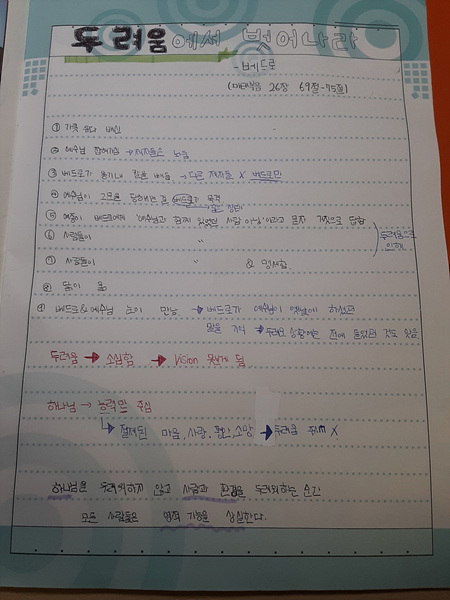 두려움에서 벗어나라
- 베드로
(마태복음 26장 69절-75절)
① 가룟 유다 배신
② 예수님 잡혀가심 → 제자들은 도망
③ 베드로가 용기내 찾을 → 다른 제자들 X 베드로만
④ 예수님이 고문을 당하시는 걸 베드로가 목격
⑤ 여종이 베드로에게 '예수님과 함께 있었던 사람 아님'이라고 묻자 거짓으로 답함
⑥ 사람들이 "
두려움으로 인해
⑦ 사람들이 " & 맹세함
⑧ 닭이 욺
⑨ 베드로&예수님 눈이 만남 → 베드로가 예수님이 옛날에 하셨던
말을 기억 → 두려운 상황에는 전에 들었던 것도 잊음
두려움 → 소심함 → Vision 못갖게 됨
하나님 → 능력만 주심
↳ 절제된 마음, 사랑, 평안, 소망 → 두려움 주심 X
하나님을 두려워하지 않고 사람과 환경을 두려워하는 순간
모든 사람들은 영적 기능을 상실한다.